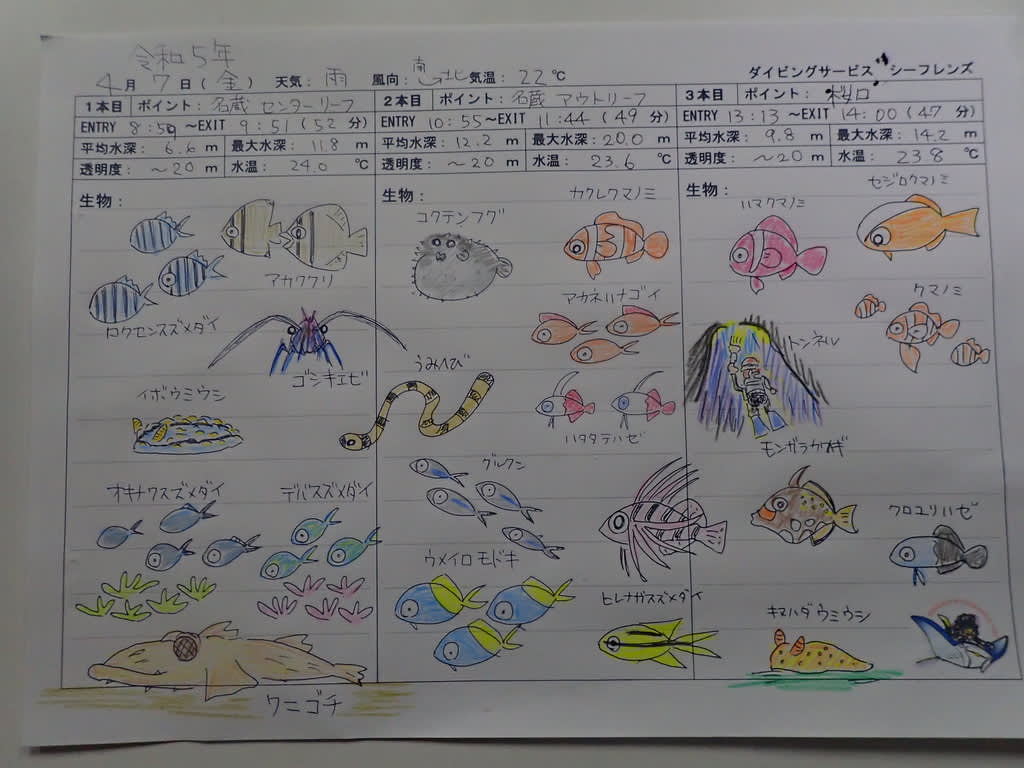 令和5年
4月 7日(金) 天気: 雨 風向: 南→北 気温: 22℃ ダイビングサービス シーフレンズ
1本目 ポイント: 名蔵 センターリーフ
ENTRY 8:59 ~EXIT 9:51 (52 分)
平均水深: 6.6 m 最大水深: 11.8 m
透明度: ~20 m 水温: 24.0 ℃
生物:
アカククリ
ロクセンスズメダイ
ゴシキエビ
イボウミウシ
オキナワスズメダイ デバスズメダイ
ワニゴチ
2本目 ポイント: 名蔵 アウトリーフ
ENTRY 10:55~EXIT 11:44 (49 分)
平均水深: 12.2 m 最大水深: 20.0 m
透明度: ~20 m 水温: 23.6 ℃
生物:
カクレクマノミ
コクテンフグ
アカネハナゴイ
うみへび
ハタタテハゼ
グルクン
ウメイロモドキ
ヒレナガスズメダイ
3本目 ポイント: 桜口
ENTRY 13:13 ~EXIT 14:00 (47 分)
平均水深: 9.8 m 最大水深: 14.2 m
透明度: ~20 m 水温: 23.8 ℃
生物:
セジロクマノミ
ハマクマノミ
クマノミ
トンネル
モンガラカワハギ
クロユリハゼ
キマハダウミウシ